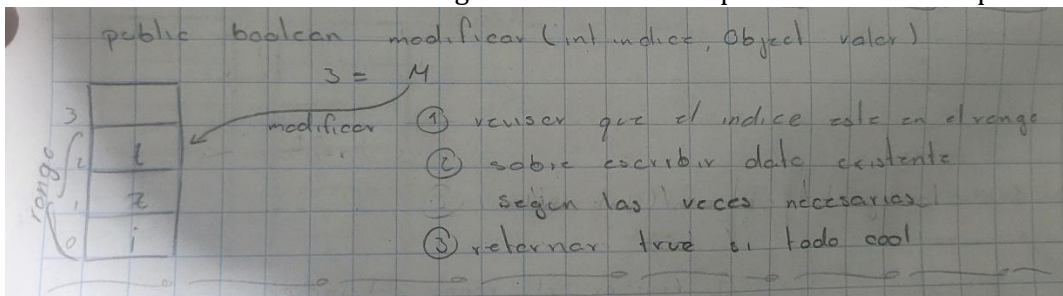 public boolean modificar (int indice, Object valor)
3 = M
3
modificar ① revisar que el indice este en el rango
2 l ② sobre escribir dato existente
rango
1 z según las veces necesarias
0 i ③ retornar true si todo cool